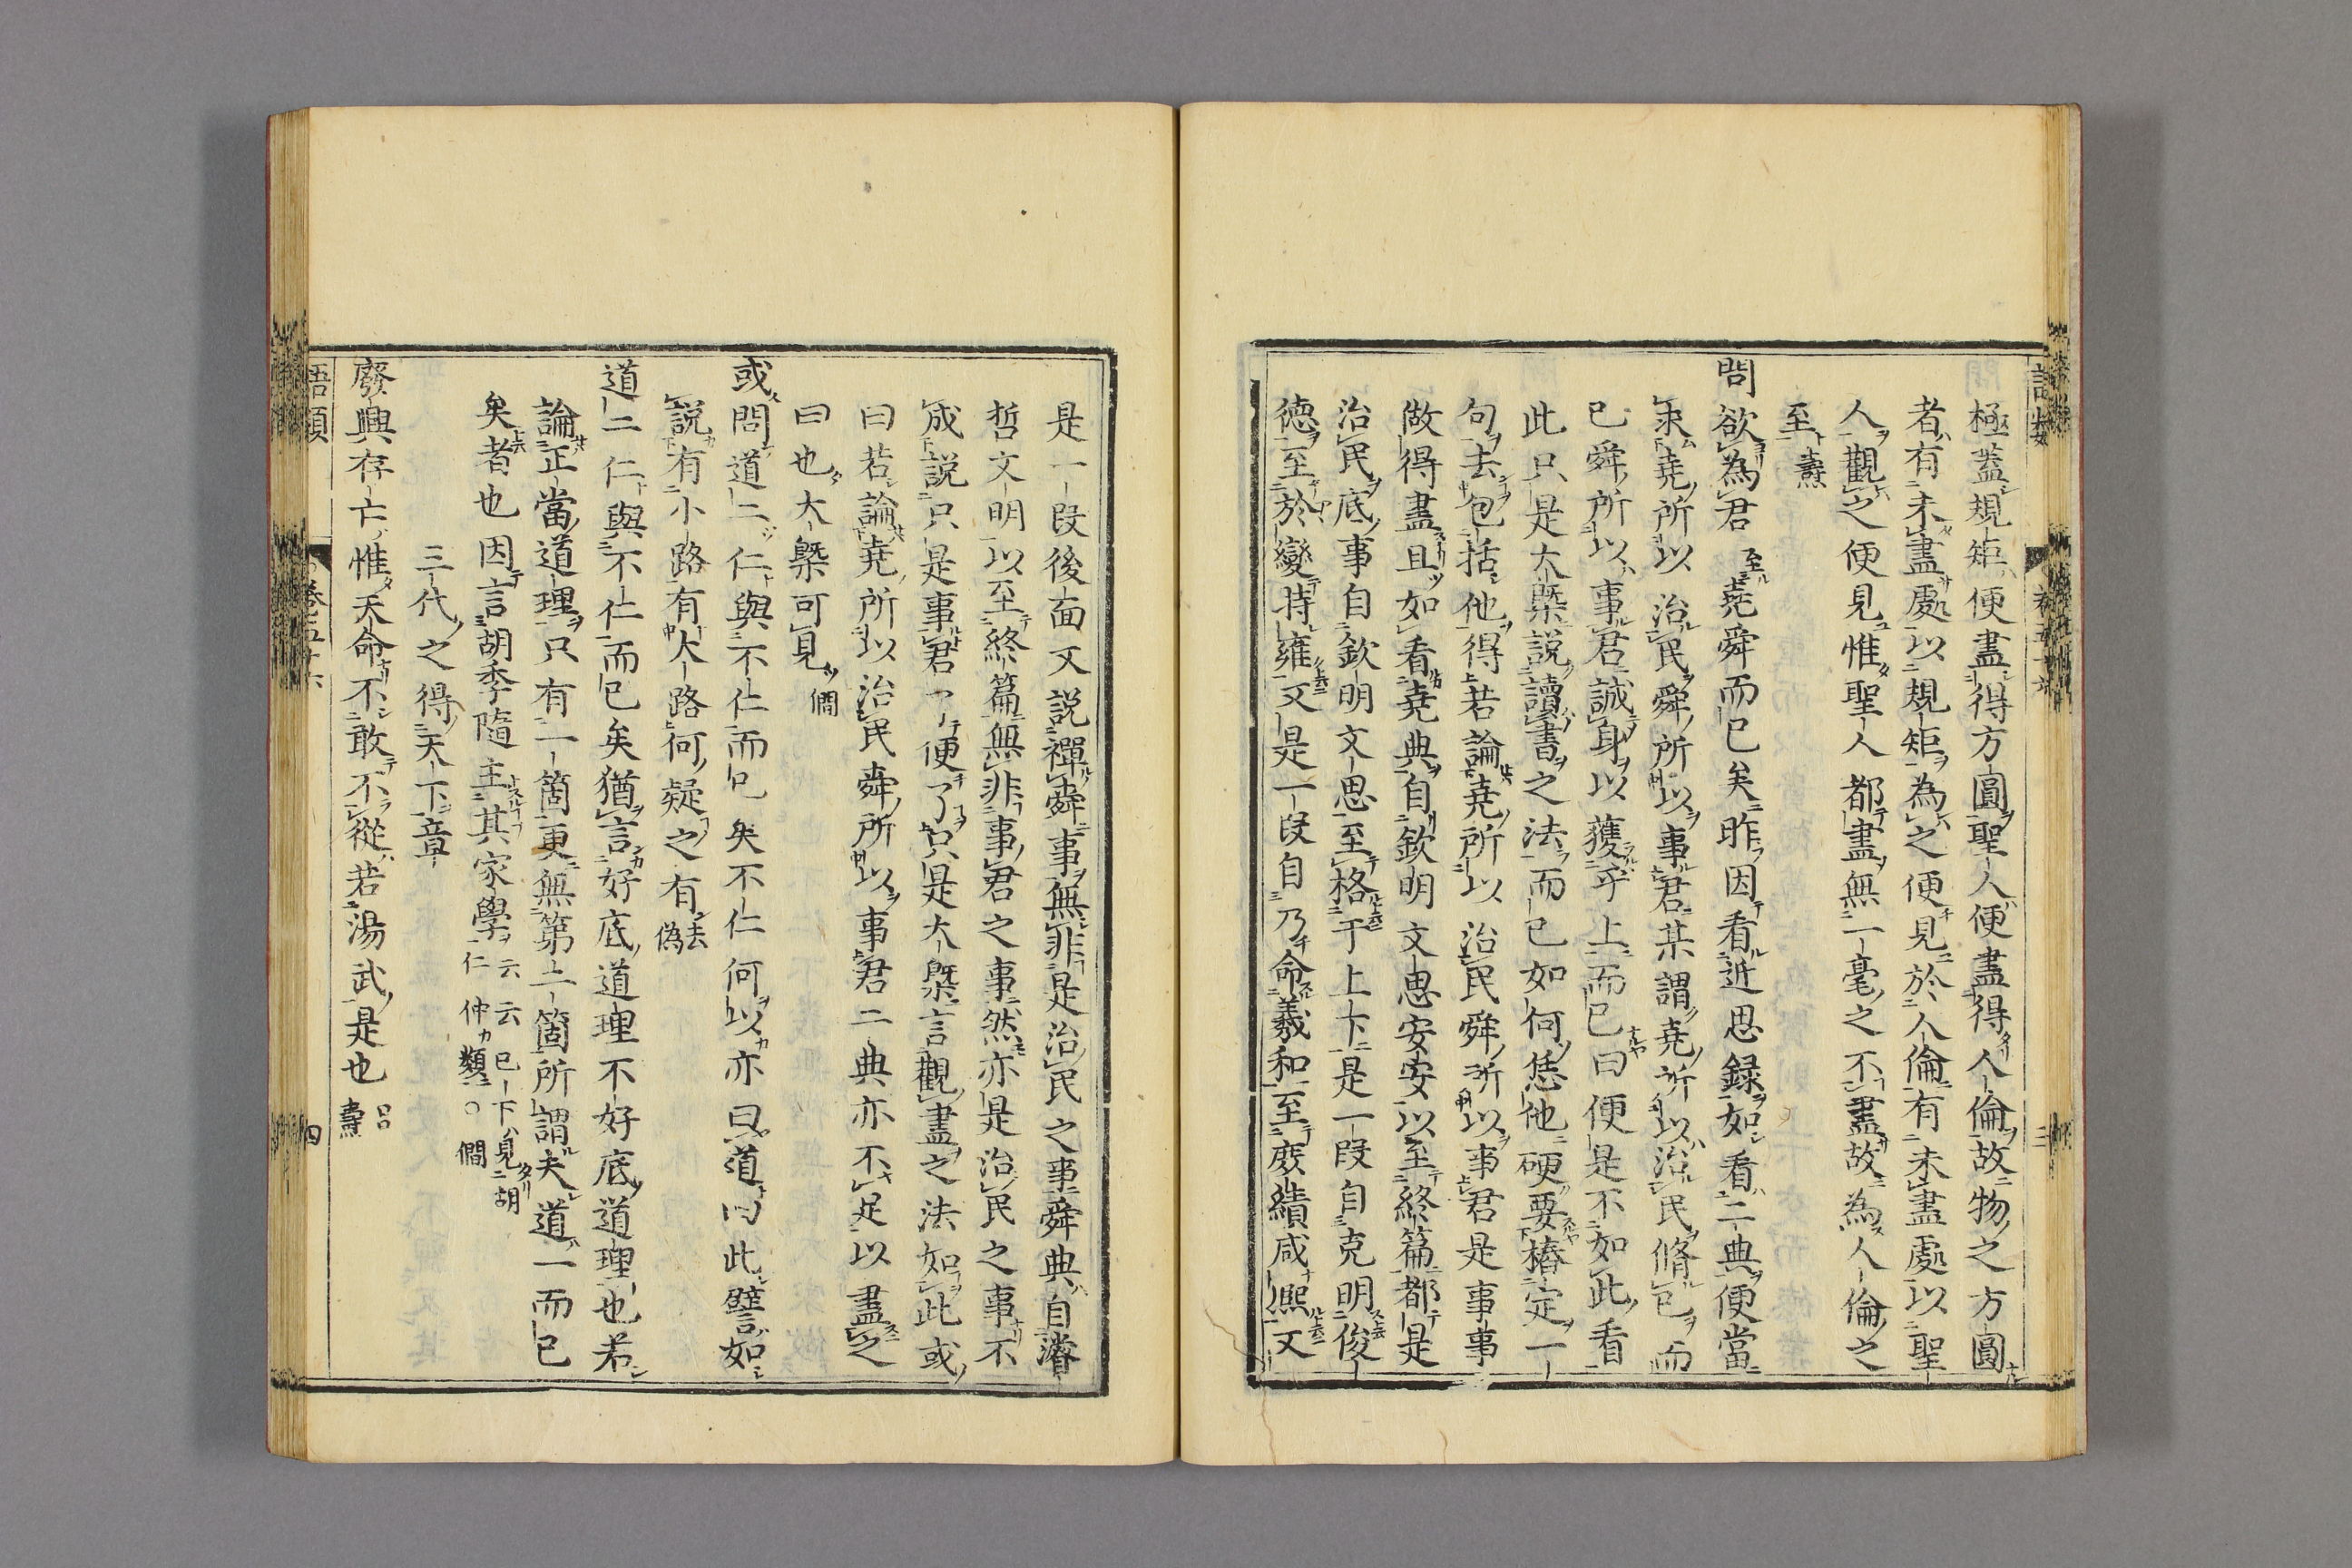 極蓋規矩便盡得方圓聖人便盡得人倫故物之方圓
者有未盡處以規矩為之便見於人倫有未盡處以聖
人觀之便見惟聖人都盡無一毫之不盡故為人倫之
至燾
問欲為君至堯舜而已矣昨因看近思録如看二典便當
求堯所以治民舜所以事君某謂堯所以治民脩己而
已舜所以事君誠身以獲乎上而已曰便是不如此看
此只是大槩說讀書之法而已如何恁他硬要樁定一
句去包括他得若論堯所以治民舜所以事君是事事
做得盡且如看堯典自欽明文思安安以至終篇都是
治民底事自欽明文思至格于上下是一段自克明俊
德至於變時雍又是一段自乃命羲和至庶績咸熙又
是一段後面又說禪舜事無非是治民之事舜典自濬
哲文明以至終篇無非事君之事然亦是治民之事不
成說只是事君了便了只是大槩言觀盡之法如此或
曰若論堯所以治民舜所以事君二典亦不足以盡之
曰也大槩可見僩
或問道二仁與不仁而已矣不仁何以亦曰道曰此譬如
說有小路有大路何疑之有去偽
道二仁與不仁而已矣猶言好底道理不好底道理也若
論正當道理只有一箇更無第二箇所謂夫道一而已
矣者也因言胡季隨主其家學云云已下見胡仁仲類○僩
三代之得天下章
廢興存亡惟天命不敢不從若湯武是也呂燾
語類
卷五十六
四